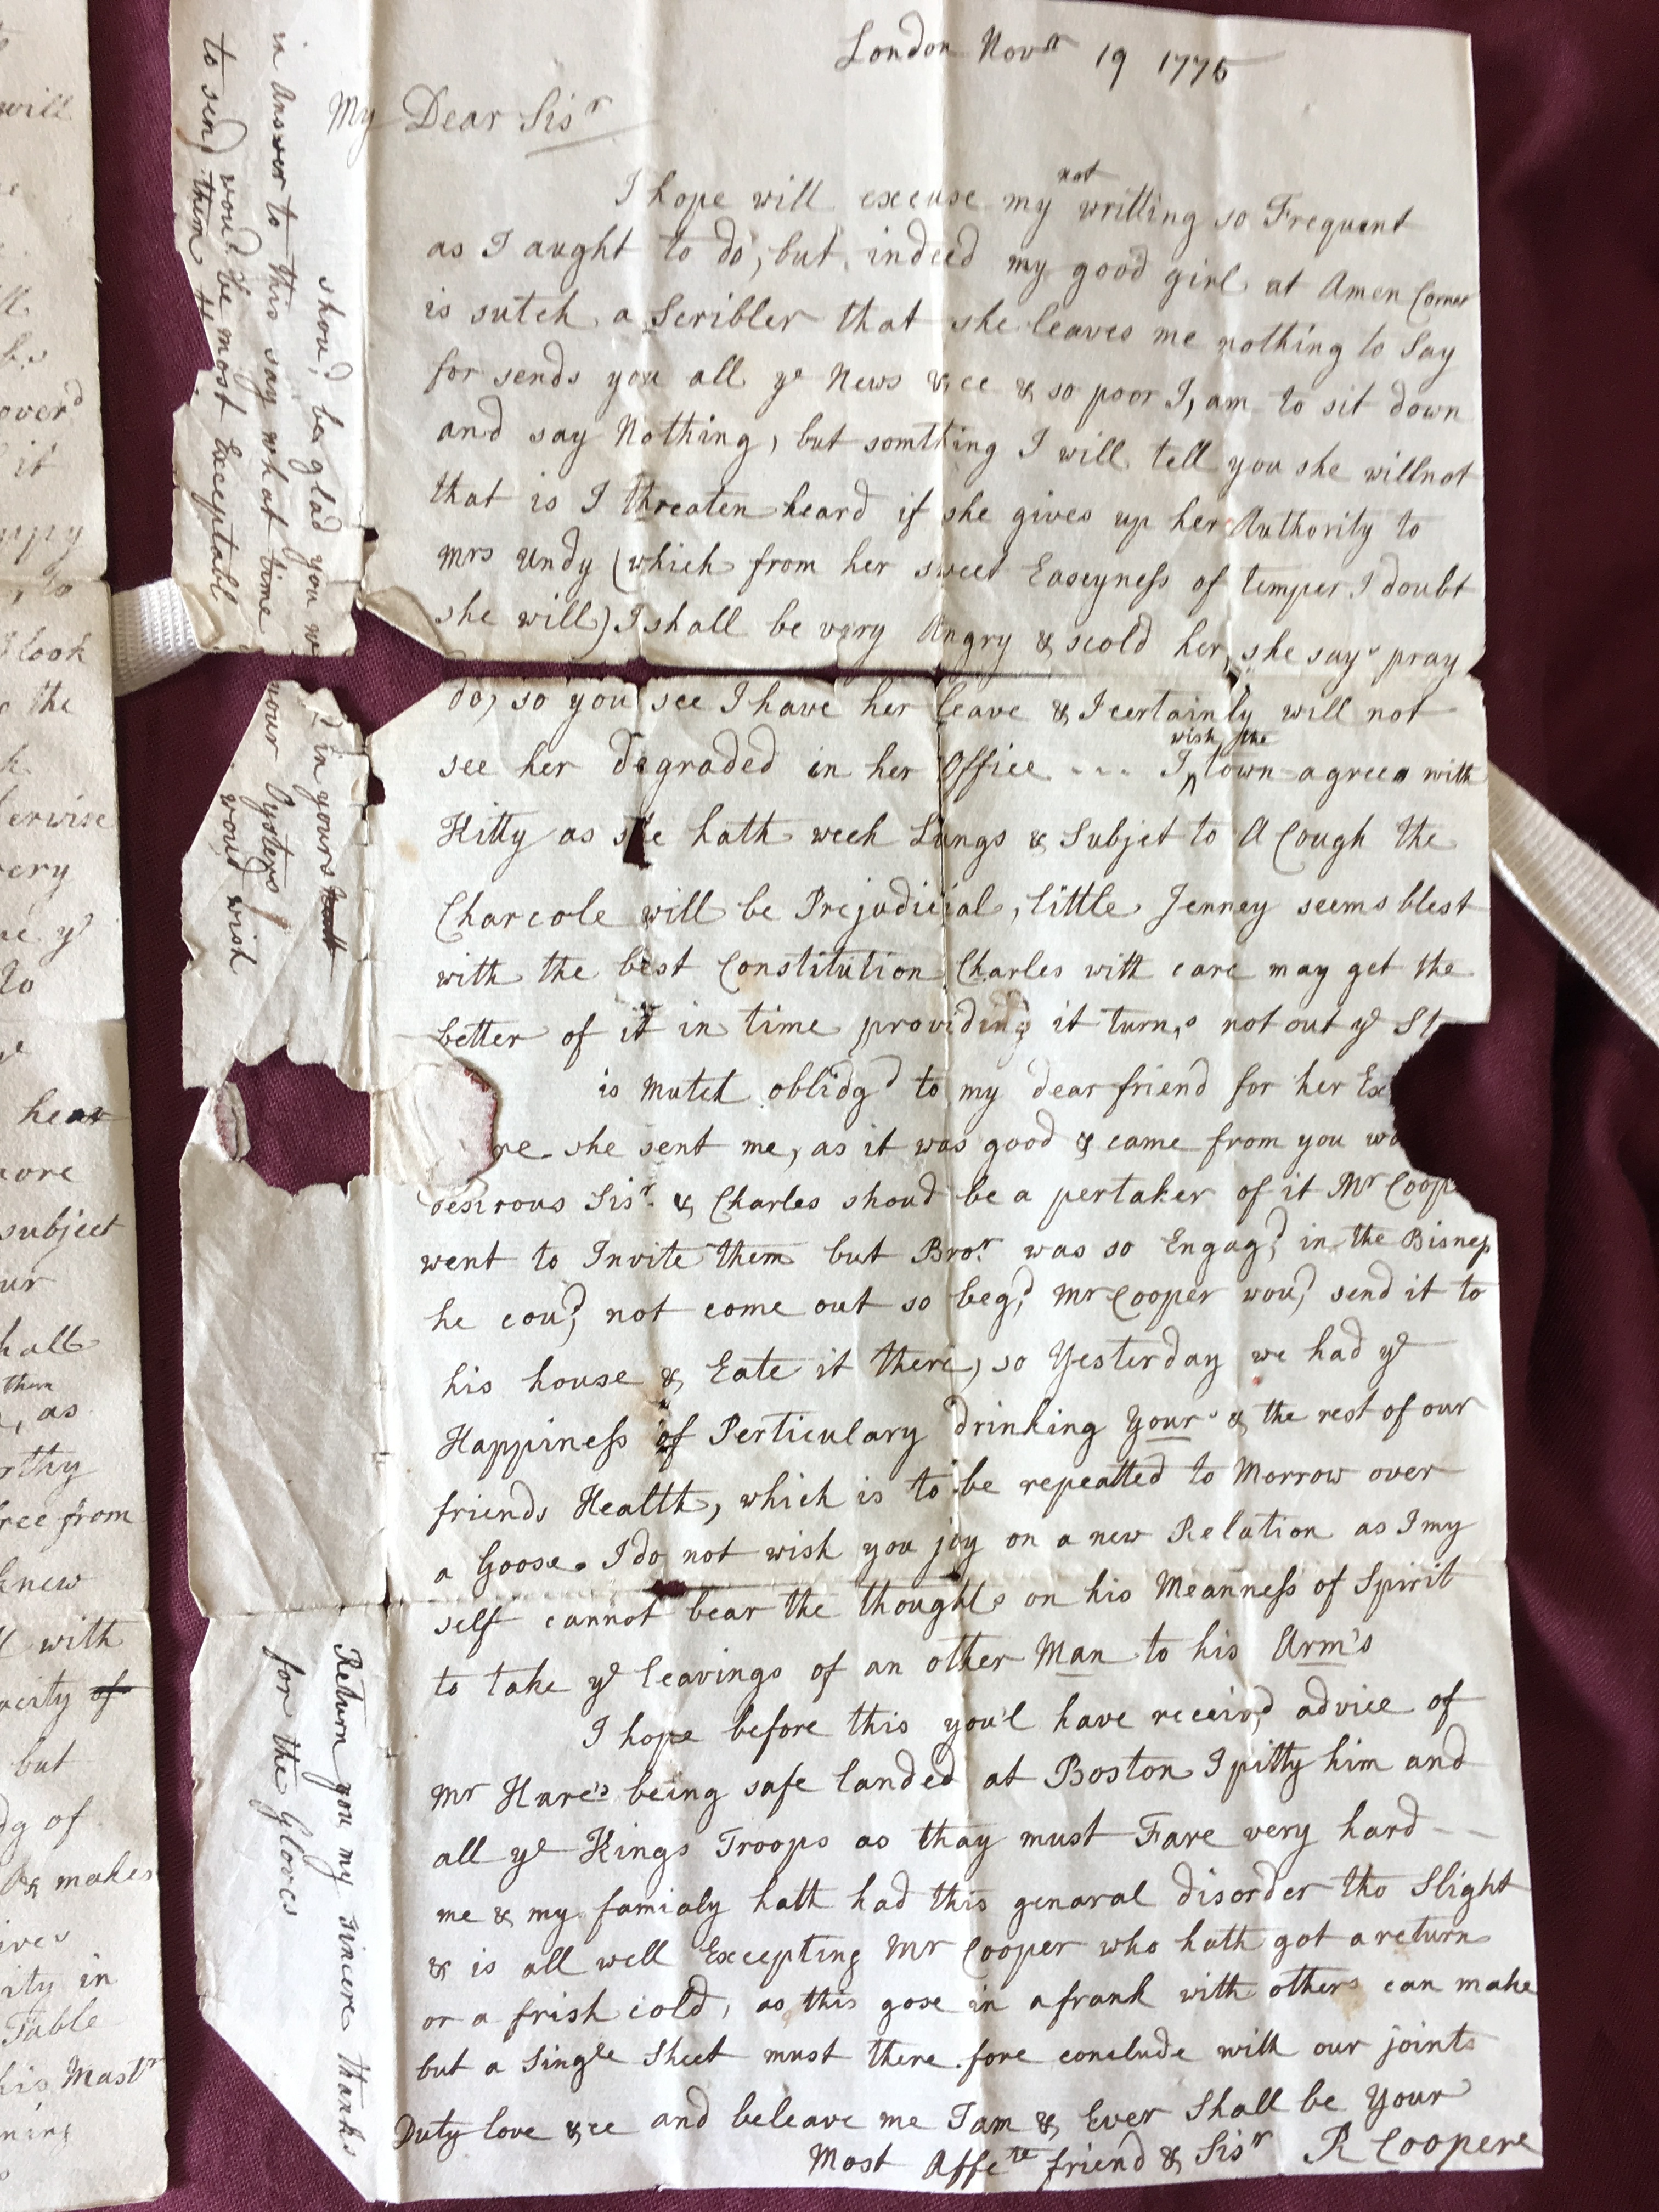 London Novr 19 1775
My Dear Sisr
I hope will excuse my not writting so Frequent
as I aught to do, but indeed my good girl at Amen Corner
is sutch a Scribler that she leaves me nothing to Say
for sends you all ye News &ce & so poor I, am to sit down
and say Nothing, but somthing I will tell you she willnot
that is I threaten heard if she gives up her Authority to
Mrs Undy (which from her sweet Easeyness of temper I doubt
she will) I shall be very Angry & scold her, she says pray
do, so you see I have her leave & I certainly will not
see her degraded in her Office --- I wish the town agrees with
Kitty as she hath week Lungs & Subjet to A Cough the
Charcole will be Prejudicial, little Jenney seems blest
with the best Constitution Charles with care may get the
better of it in time providing it turns not out ye St
is Mutch oblidgd to my dear friend for her Ex
re she sent me, as it was good & came from you wa
desirous Sisr & Charles shoud be a pertaker of it Mr Coop
went to Invite them but Bror was so Engagd in the Bisness
he coud not come out so begd Mr Cooper woud send it to
his house & Eate it there, so Yesterday we had ye
Happiness of Perticulary drinking Yours & the rest of our
friends Health, which is to be repeatted to Morrow over
a Goose. I do not wish you joy on a new Relation as I my
self cannot bear the thoughts on his Meanness of Spirit
to take ye leavings of an other Man to his Arm's
I hope before this you'l have receivd advice of
Mr Hare's being safe landed at Boston I pitty him and
all ye Kings Troops as thay must Fare very hard --
me & my famialy hath had this genaral disorder tho Slight
& is all well Excepting Mr Cooper who hath got a return
or a frish cold, as this gose in a frank with others can make
but a Single Sheet must there fore conclude with our joints
Duty love &ce and beleave me I am & Ever Shall be Your
Most Affecte friend & Sisr R Coopere
shoud be glad you w d in yours
in Answer to this say what time your Oysters
woud be most Exceptabl woud wish
to send them
Return you my sincere thanks
for the Gloves
will
overd
it
appy
to
I look
the
erwise
very
ye
to
hear
more
subject
our
hall
them
, as
rthy
free from
knew
with
acity of
but
dg of
& makes
ives
ity in
Table
his Mastr
ning